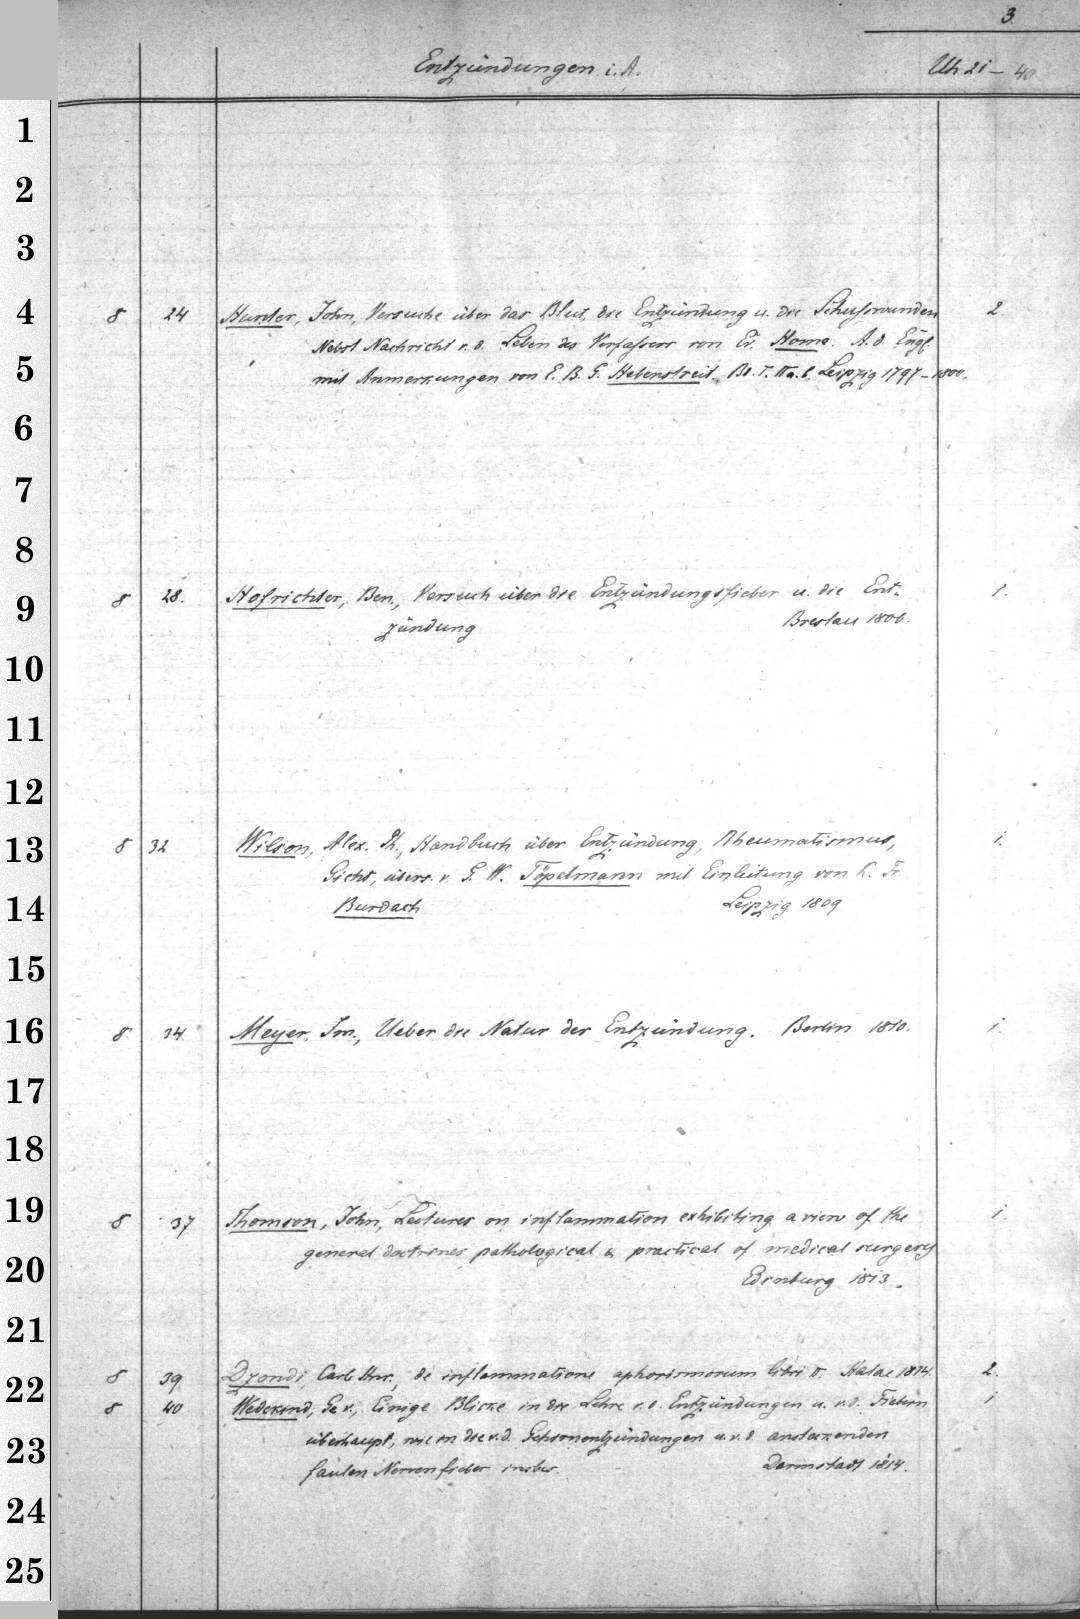 3.
Entzündungen i. A. Uh 21 - 40
1
2
3
4 8 24 Hunter, John, Versuche über das Blut, die Entzündung u. die Schußwunden 2
Nebst Nachricht v. d. Leben des Verfassers von Ev. Home. A. d. Engl.
5 mit Anmerkungen von E. B. G. Hebenstreit. Bd. I. II a. b. Leipzig 1797-1800.
6
7
8
9 8 28. Hofrichter, Ben., Versuch über die Entzündungsfieber u. die Ent- 1.
zündung Breslau 1806.
10
11
12
13 8 32 Wilson, Alex. Ph., Handbuch über Entzündung, Rheumatismus, 1.
Gicht, übers. v. G. W. Töpelmann mit Einleitung von K. Fr.
14 Burdach Leipzig 1809
15
16 8 34 Meyer, Im., Ueber die Natur der Entzündung. Berlin 1810. 1.
17
18
19 8 37 Thomson, John, Lectures on inflammation exhibiting a view of the 1.
general doctrines pathological & practical of medical surgery
20 Edinburg 1813.
21
22 8 39 Dzondi, Carl Hnr., de inflammatione aphorismorum libri II. Halae 1814. 2.
8 40 Wedekind, Ge v., Einige Blicke in die Lehre v. d. Entzündungen u. v. d. Fiebern 1
23 überhaupt, wie in die v. d. Gehirnentzündungen u. v. d. ansteckenden
faulen Nervenfieber insbes. Darmstadt 1814.
24
25